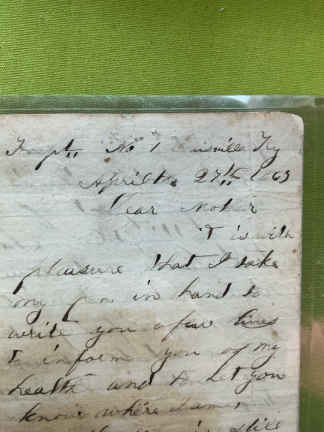 No 1 Ky
April 27th 63
Dear Mother
it is with
pleasure that I take
my pen in hand to
write you a few lines
to inform you of my
health and to let you
know where I am
still